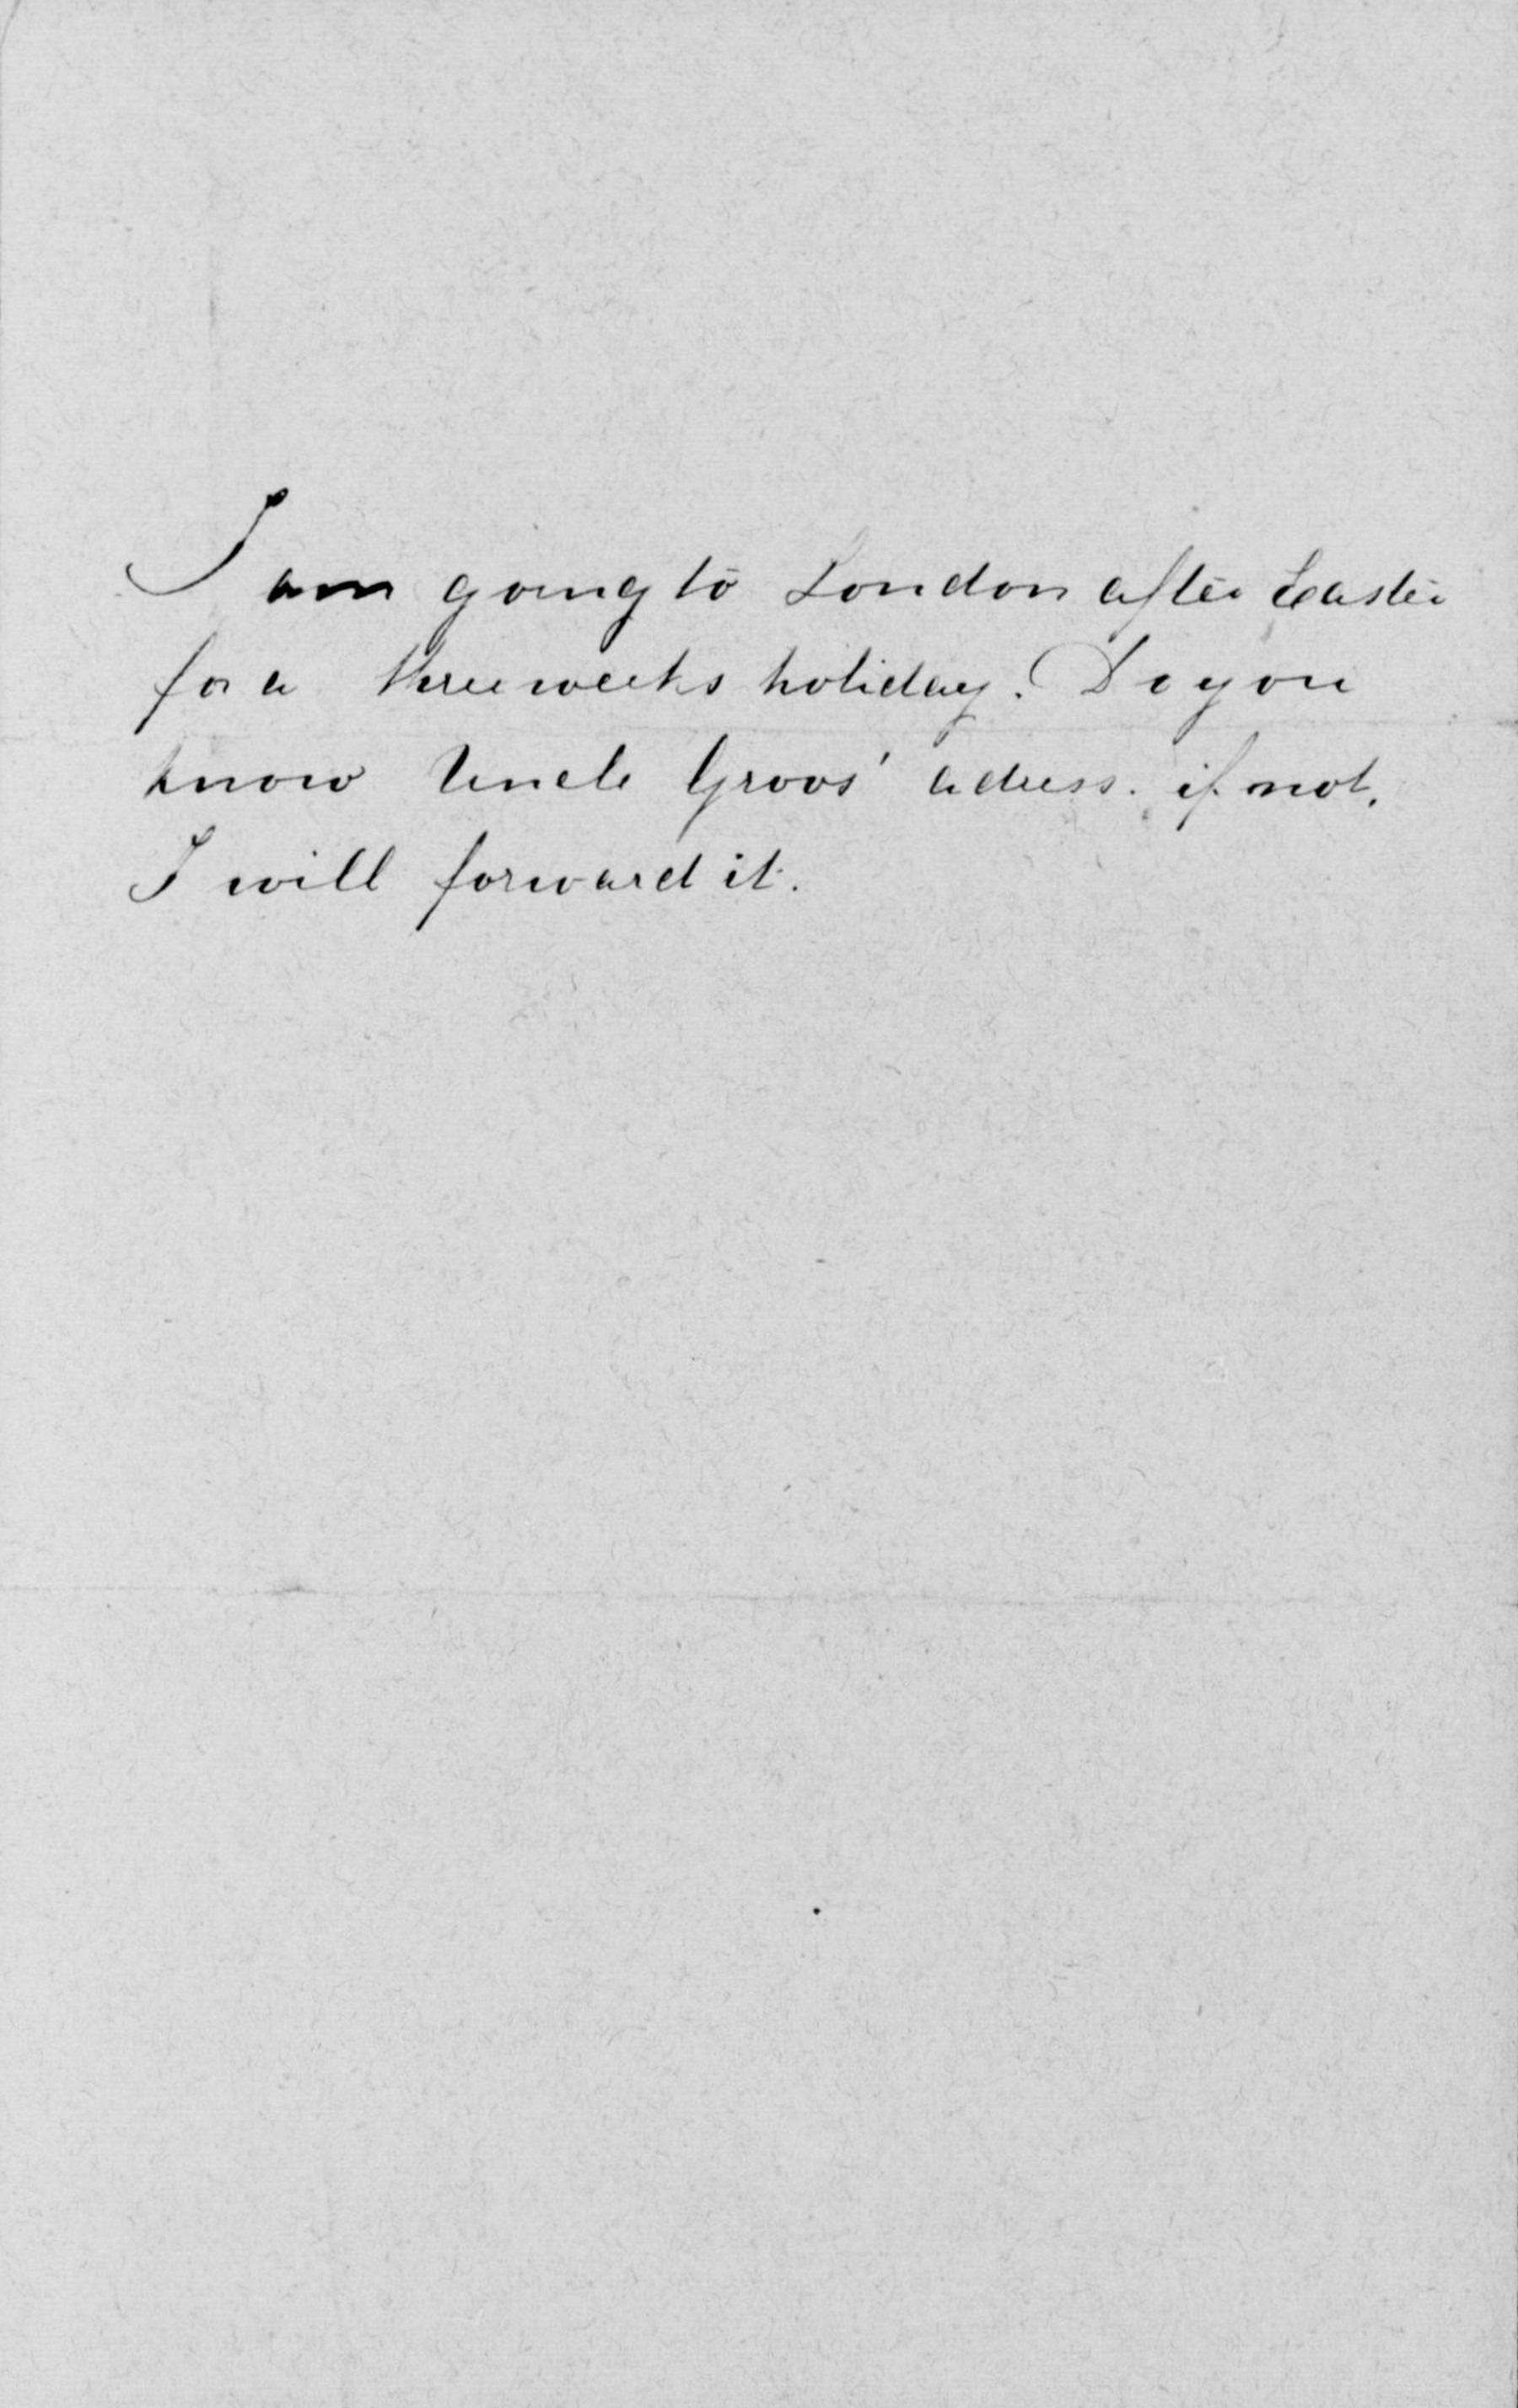 I am going to London after Easter
for a three weeks holiday. Do you
know Uncle Groos' adress. if not.
I will forward it.